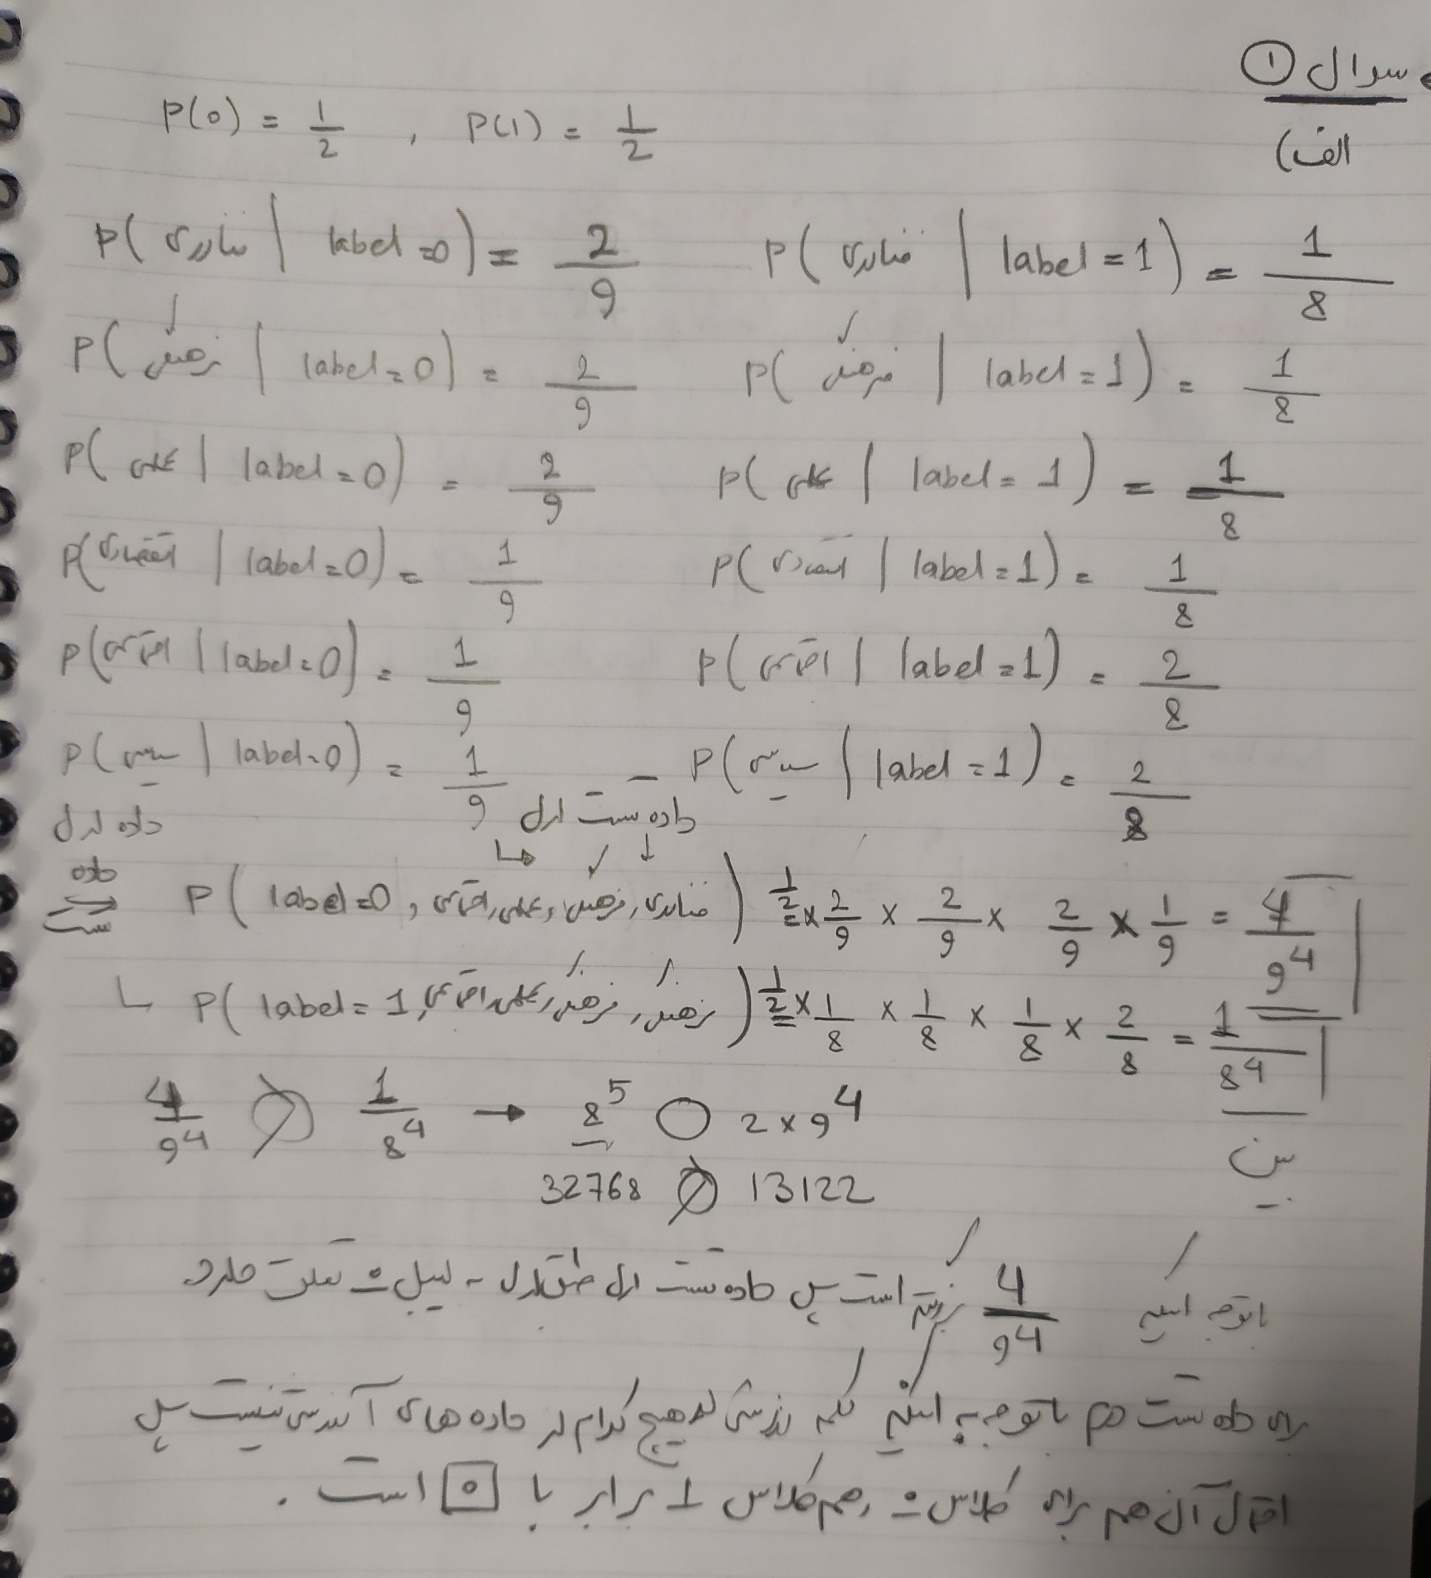 سوال ①
الف)
P(0) = 1/2 , P(1) = 1/2
P( فناوری | label=0) = 2/9    P( فناوری | label=1) = 1/8
P( فرهنگی | label=0) = 2/9    P( فرهنگی | label=1) = 1/8
P( علمی | label=0) = 2/9    P( علمی | label=1) = 1/8
P( اقتصادی | label=0) = 1/9    P( اقتصادی | label=1) = 1/8
P( اجتماعی | label=0) = 1/9    P( اجتماعی | label=1) = 2/8
P( سیاسی | label=0) = 1/9    P( سیاسی | label=1) = 2/8
داده اول    داده تست اول
داده تست ⇒ P( label=0, فناوری, فرهنگی, علمی, اجتماعی ) = 1/2 × 2/9 × 2/9 × 2/9 × 1/9 = 4/9^4
↳ P( label=1, فرهنگی, فرهنگی, علمی, اجتماعی ) = 1/2 × 1/8 × 1/8 × 1/8 × 2/8 = 1/8^4
4/9^4 > 1/8^4 → 8^5 ○ 2×9^4
32768 > 13122
پس
باتوجه اینکه 4/9^4 بزرگتر است پس داده تست اول طبق مدل به لیبل 0 تعلق دارد
برای داده تست دوم باتوجه به اینکه کلمه ورزشی در هیچ کدام از داده های آموزشی نیست پس
احتمال آن هم برای کلاس 0 و هم کلاس 1 برابر با 0 است .